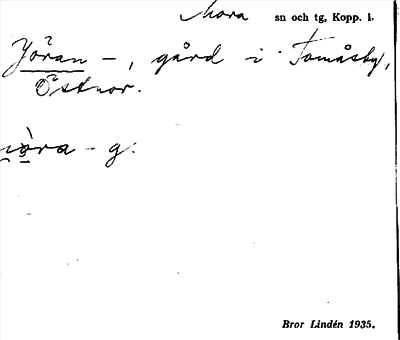 Mora sn och tg, Kopp. l.
Jöran - , gård i Tomåsby,
Östnor.
- g:
Bror Lindén 1935.